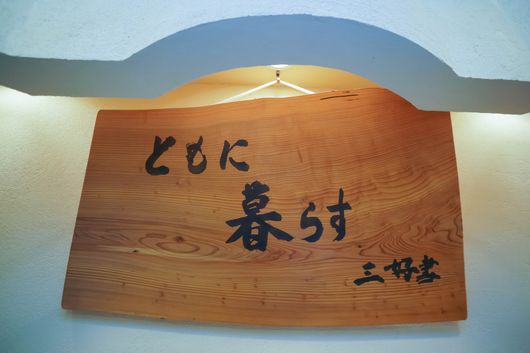 ともに
暮らす
三好書